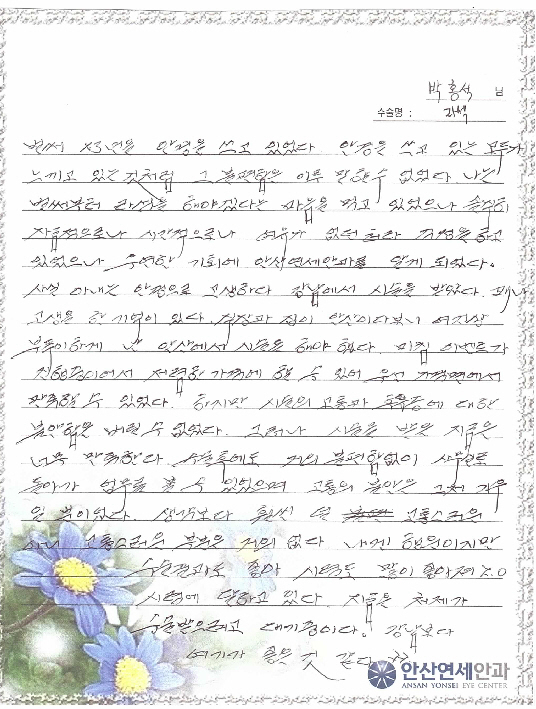 박홍석 님
수술명 : 라섹
벌써 x3년을 안경을 쓰고 있었다. 안경을 쓰고 있는 모두가
느끼고 있는 것처럼 그 불편함은 이루 말할 수 없었다. 나는
벌써부터 라섹을 해야겠다는 마음을 먹고 있었으나 솔직히
자금적으로나 시간적으로나 여유가 없던 걱정을 하고
있었으나 우연한 기회에 안산연세안과를 알게 되었다.
사실 아내는 안경으로 고생하다 강남에서 시술을 받았다. 꽤나
고생을 한 기억이 있다. 직장과 집이 안산이다보니 여지상
부득이하게 난 안산에서 시술을 해야 했다. 마침 이벤트가
진행중이어서 저렴한 가격에 할 수 있어 우선 가격면에서
만족할 수 있었다. 하지만 시술의 고통과 대한
불안함은 버릴 수 없었다. 그러나 시술을 받은 지금은
너무 만족한다. 수술후에도 거의 불편함없이 사무실로
돌아가 업무를 볼 수 있었으며 고통의 불안은 그저 기우
일 뿐이었다. 생각보다 훨씬 덜 고통스러워
아니 고통스러운 부분은 거의 없다. 내겐 행운이지만
수술결과도 좋아 시력도 많이 좋아져 1.0
시력에 달하고 있다. 지금은 처제가
수술받으려고 대기중이다. 강남보다
여기가 좋은 것 같다.
안산연세안과
ANSAN YONSEI EYE CENTER